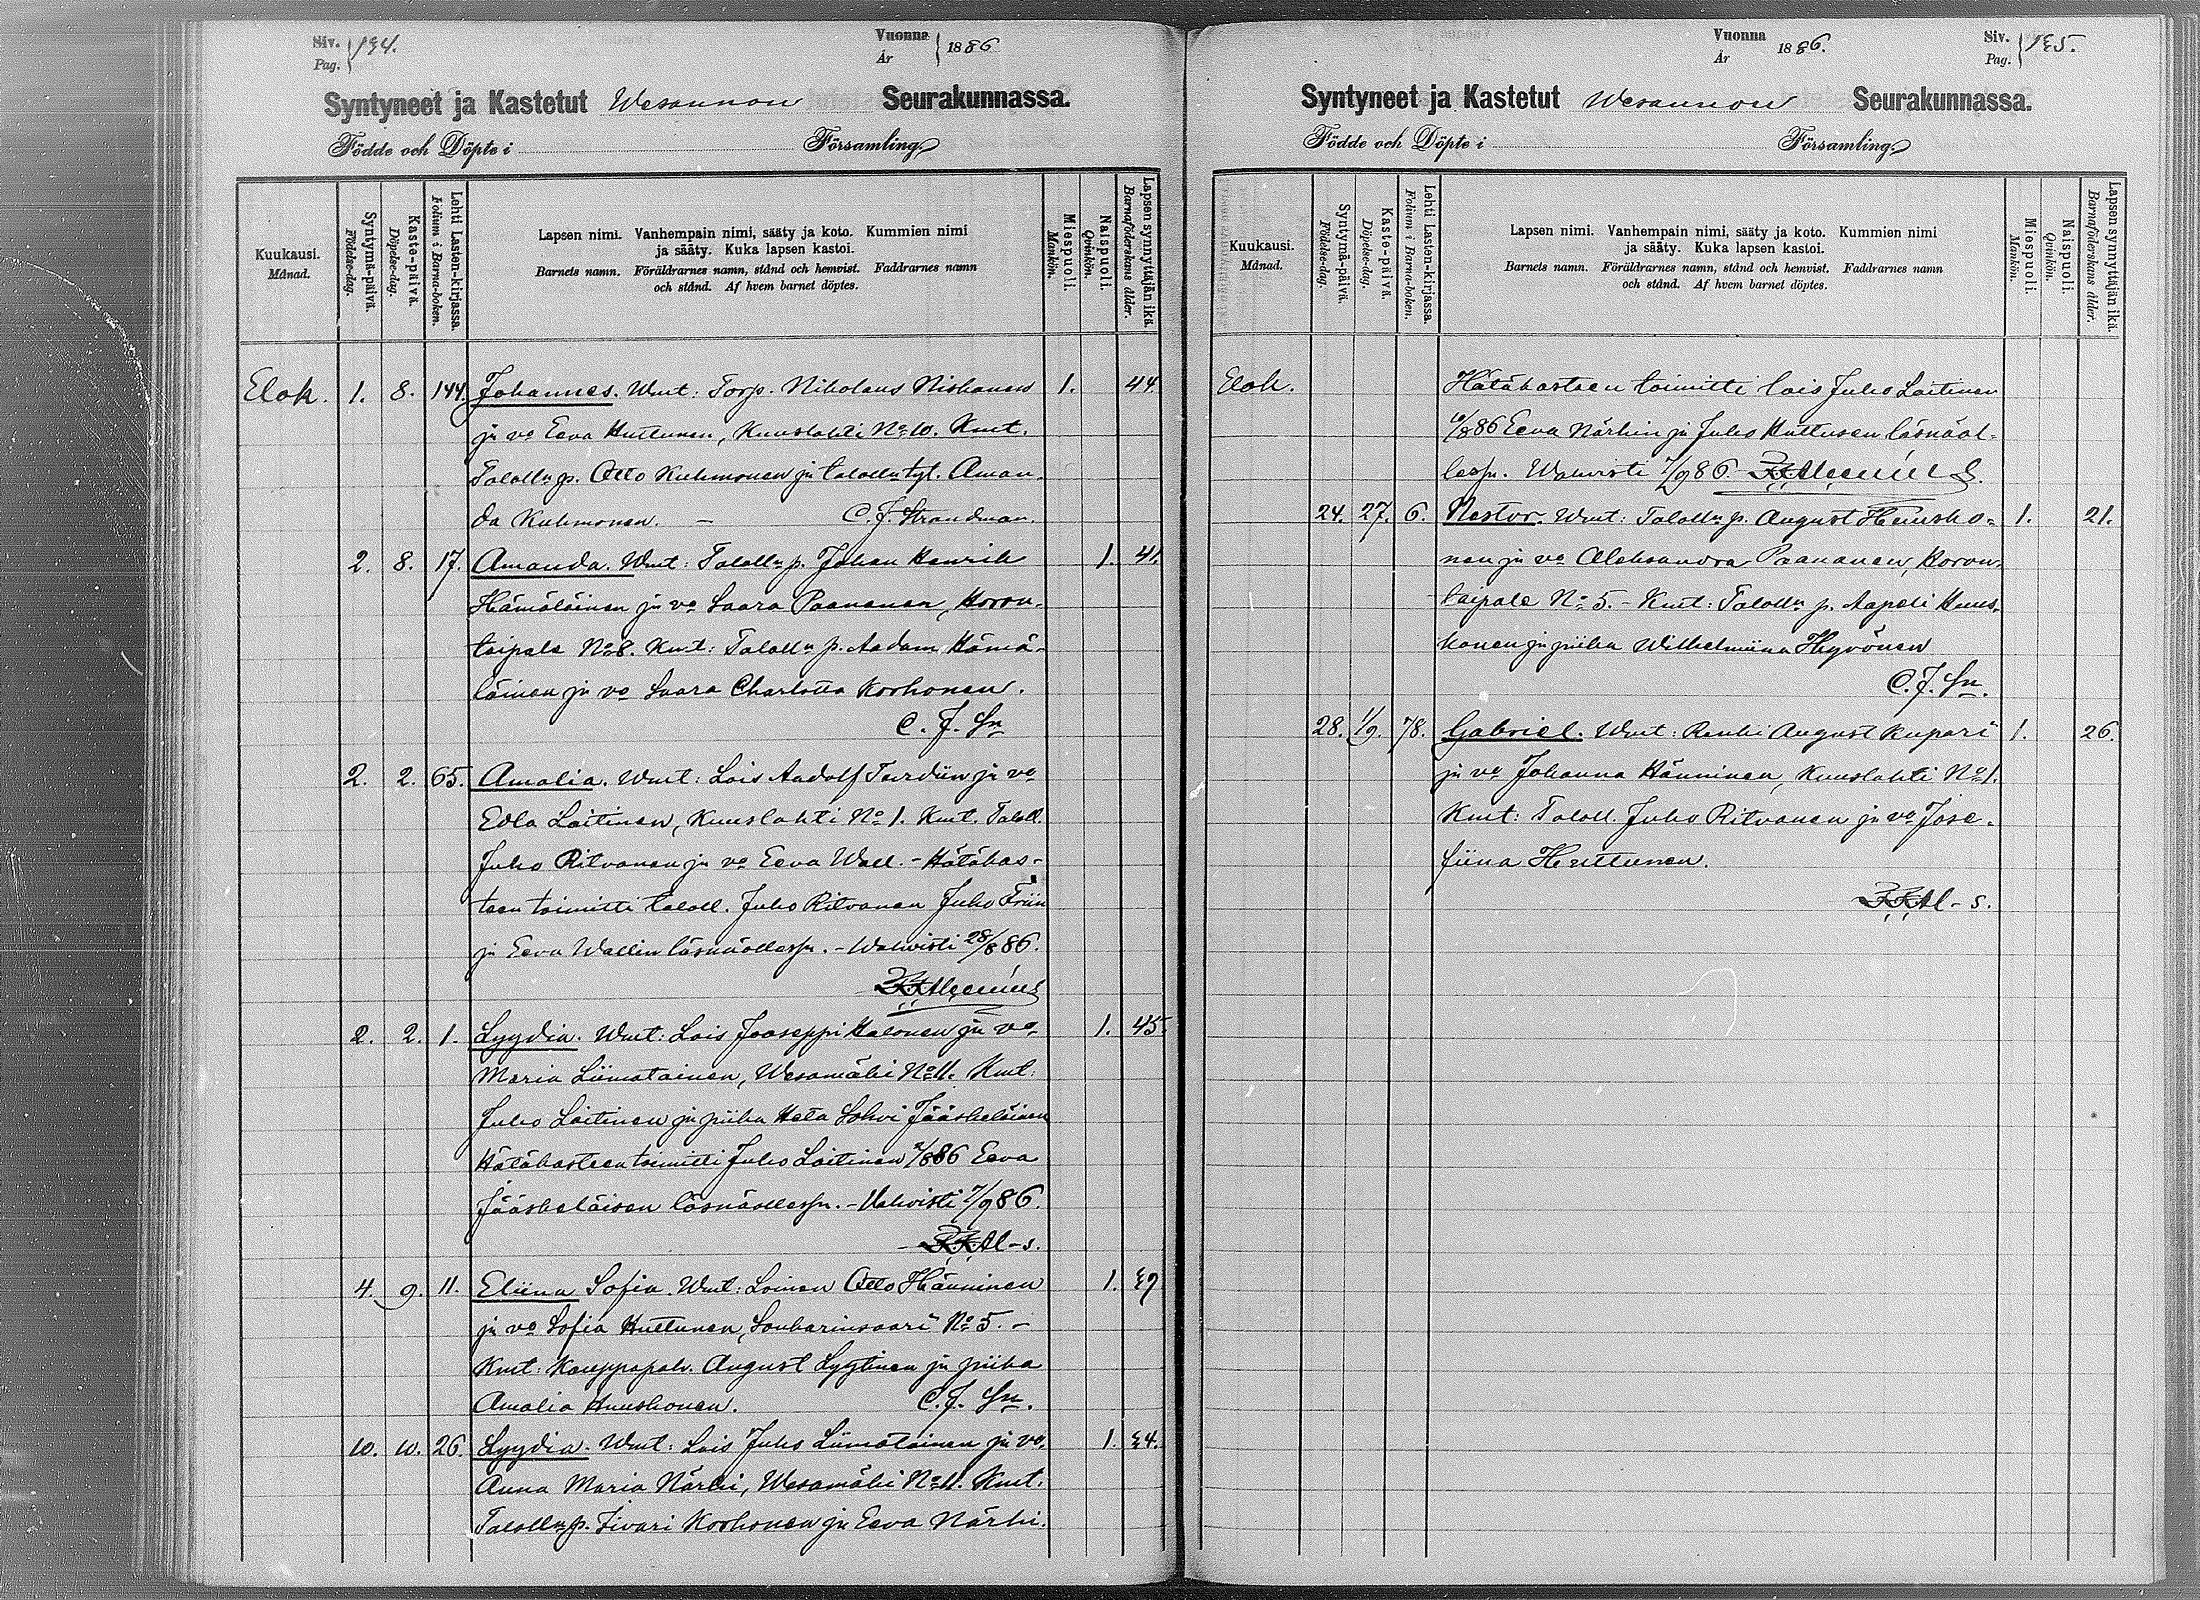 Siv. Pag. 134.
Vuonna År 1886
Syntyneet ja Kastetut Wesannon Seurakunnassa.
Födde och Döpte i Församling.
Kuukausi. Månad.
Syntymä-päivä. Födelse-dag.
Kaste-päivä. Döpelse-dag.
Lehti Lasten-kirjassa. Folium i Barna-boken.
Lapsen nimi. Vanhempain nimi, sääty ja koto. Kummien nimi
ja sääty. Kuka lapsen kastoi.
Barnets namn. Föräldrarnes namn, stånd och hemvist. Faddrarnes namn
och stånd. Af hvem barnet döptes.
Miespuoli. Mankön.
Naispuoli. Qvinkön.
Lapsen synnyttäjän ikä. Barnaföderskans ålder.
Elok. 1. 8. 144. Johannes. Wmt: Torp. Nikolaus Niskanen 1. 44.
ja vo Eeva Huttunen, Kuuslahti No 10. Kmt.
Taloll:n p. Otto Kuhmonen ja taloll:n tyt. Aman-
da Kuhmonen. – C. J. Strandman.
2. 8. 17. Amanda. Wmt: Taloll:n p. Johan Henrik 1. 41.
Hämäläinen ja vo Saara Paananen, Horon-
taipale No 8. Kmt: Taloll:n p. Aadam Hämä-
läinen ja vo Saara Charlotta Korhonen.
C. J. Sn
2. 2. 65. Amalia. Wmt: Lois Aadolf Tardiin ja vo
Edla Laitinen, Kuuslahti No 1. Kmt. Taloll.
Juho Ritvanen ja vo Eeva Wall. - Hätäkas-
teen toimitti taloll. Juho Ritvanen Juho Friin
ja Eeva Wallin läsnäollessa. - Wahvisti 28/8 86.
2. 2. 1. Lyydia. Wmt: Lois Jooseppi Halonen ja vo 1. 45.
Maria Liimatainen, Wesamäki No 11. Kmt:
Juho Laitinen ja piika Heta Sohvi Jääskeläinen
Hätäkasteen toimitti Juho Laitinen 2/8 86 Eeva
Jääskeläisen läsnäollessa. - Vahvisti 7/9 86.
4. 9. 11. Eliina Sofia. Wmt: Loinen Otto Hänninen 1. 39
ja vo Sofia Huttunen, Sonkarinsaari No 5. –
Kmt: Kauppapalv. August Lyytinen ja piika
Amalia Huuskonen. C. J. Sn.
10. 10. 26. Lyydia. Wmt: Lois Juho Liimatainen ja vo 1. 34.
Anna Maria Närhi, Wesamäki No 11. Kmt.
Taloll:n p. Iivari Korhonen ja Eeva Närhi.
Vuonna År 1886.
Siv. Pag. 135.
Syntyneet ja Kastetut Wesannon Seurakunnassa.
Födde och Döpte i Församling.
Kuukausi. Månad.
Syntymä-päivä. Födelse-dag.
Kaste-päivä. Döpelse-dag.
Lehti Lasten-kirjassa. Folium i Barna-boken.
Lapsen nimi. Vanhempain nimi, sääty ja koto. Kummien nimi
ja sääty. Kuka lapsen kastoi.
Barnets namn. Föräldrarnes namn, stånd och hemvist. Faddrarnes namn
och stånd. Af hvem barnet döptes.
Miespuoli. Mankön.
Naispuoli. Qvinkön.
Lapsen synnyttäjän ikä. Barnaföderskans ålder.
Elok. Hätäkasteen toimitti lois Juho Laitinen
10/8 86 Eeva Närhin ja Juho Huttusen läsnäol-
lessa. Wahvisti 7/9 86.
24. 27. 6. Nestor. Wmt: Taloll:n p. August Huusko- 1. 21.
nen ja vo Aleksandra Paananen, Horon-
taipale No 5. - Kmt: Taloll:n p. Aapeli Huus-
konen ja piika Wilhelmiina Hyvönen
C. J. Sn.
28. 1/9. 78. Gabriel. Wmt: Renki August Kupari 1. 26.
ja vo Johanna Hänninen, Kuuslahti No 1.
Kmt: Taloll. Juho Ritvanen ja vo Jose-
fiina Huttunen.